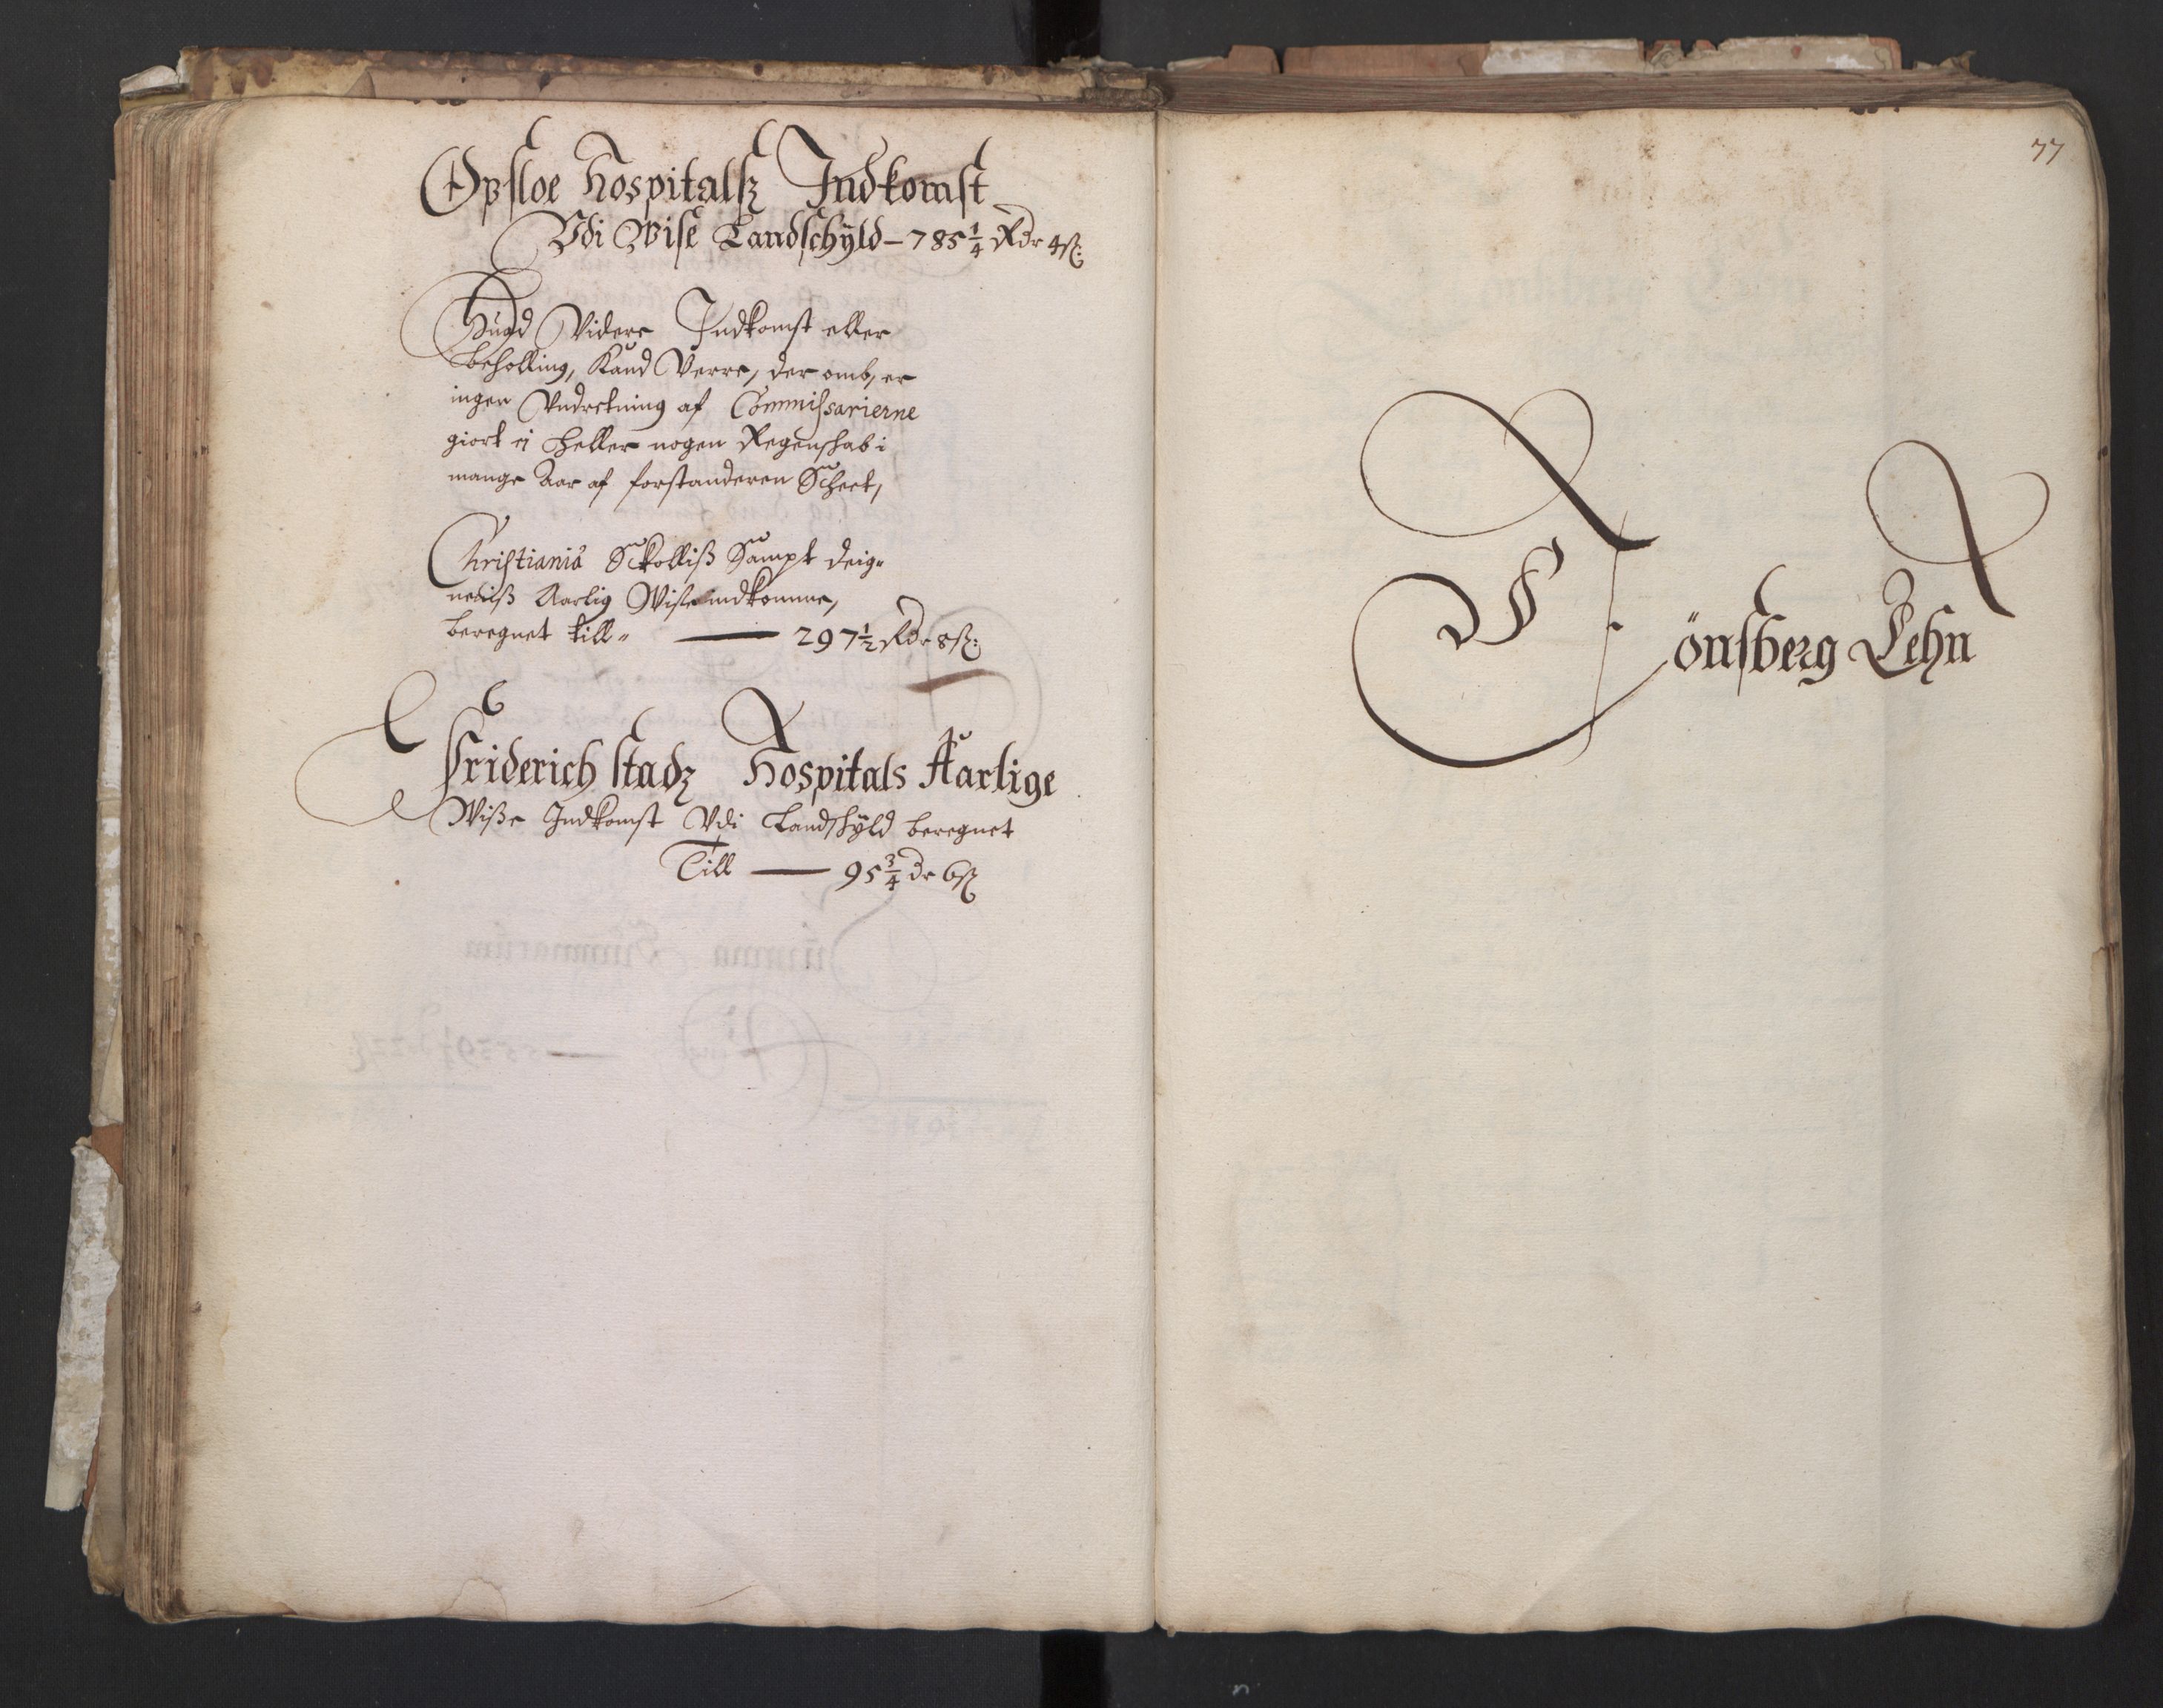 Opsloe Hospitalß Indkomst
Vdi Wise Landschÿld – 785 1/4 Rdr 4 ß:
Huad Videre Indkomst eller
beholling, Kand Verre, der omb, er
ingen Vndretning af Commissarierne
giort ej heller nogen Regenschab i
mange Aar af forstanderen Scheet,
Christiania Skolliß Sampt deig-
nediß Aarlig Wise indkomme,
beregnet till- — 297 1/2 Rdr 8 ß:
Friderichstadz Hospitals Aarlige
Wiße Indkomst Vdi Landschÿld beregnet
Till — 95 3/4 dr 6 ß
77
Tönsberg Lehn